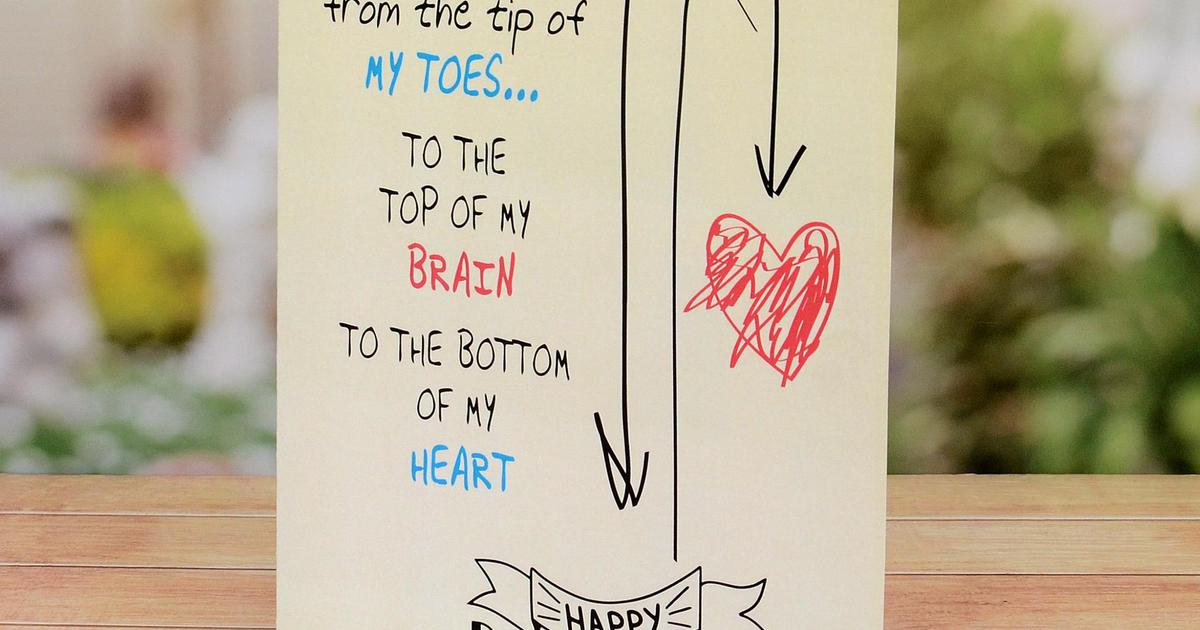 from the tip of
MY TOES...
TO THE
TOP OF MY
BRAIN
TO THE BOTTOM
OF MY
HEART
HAPPY